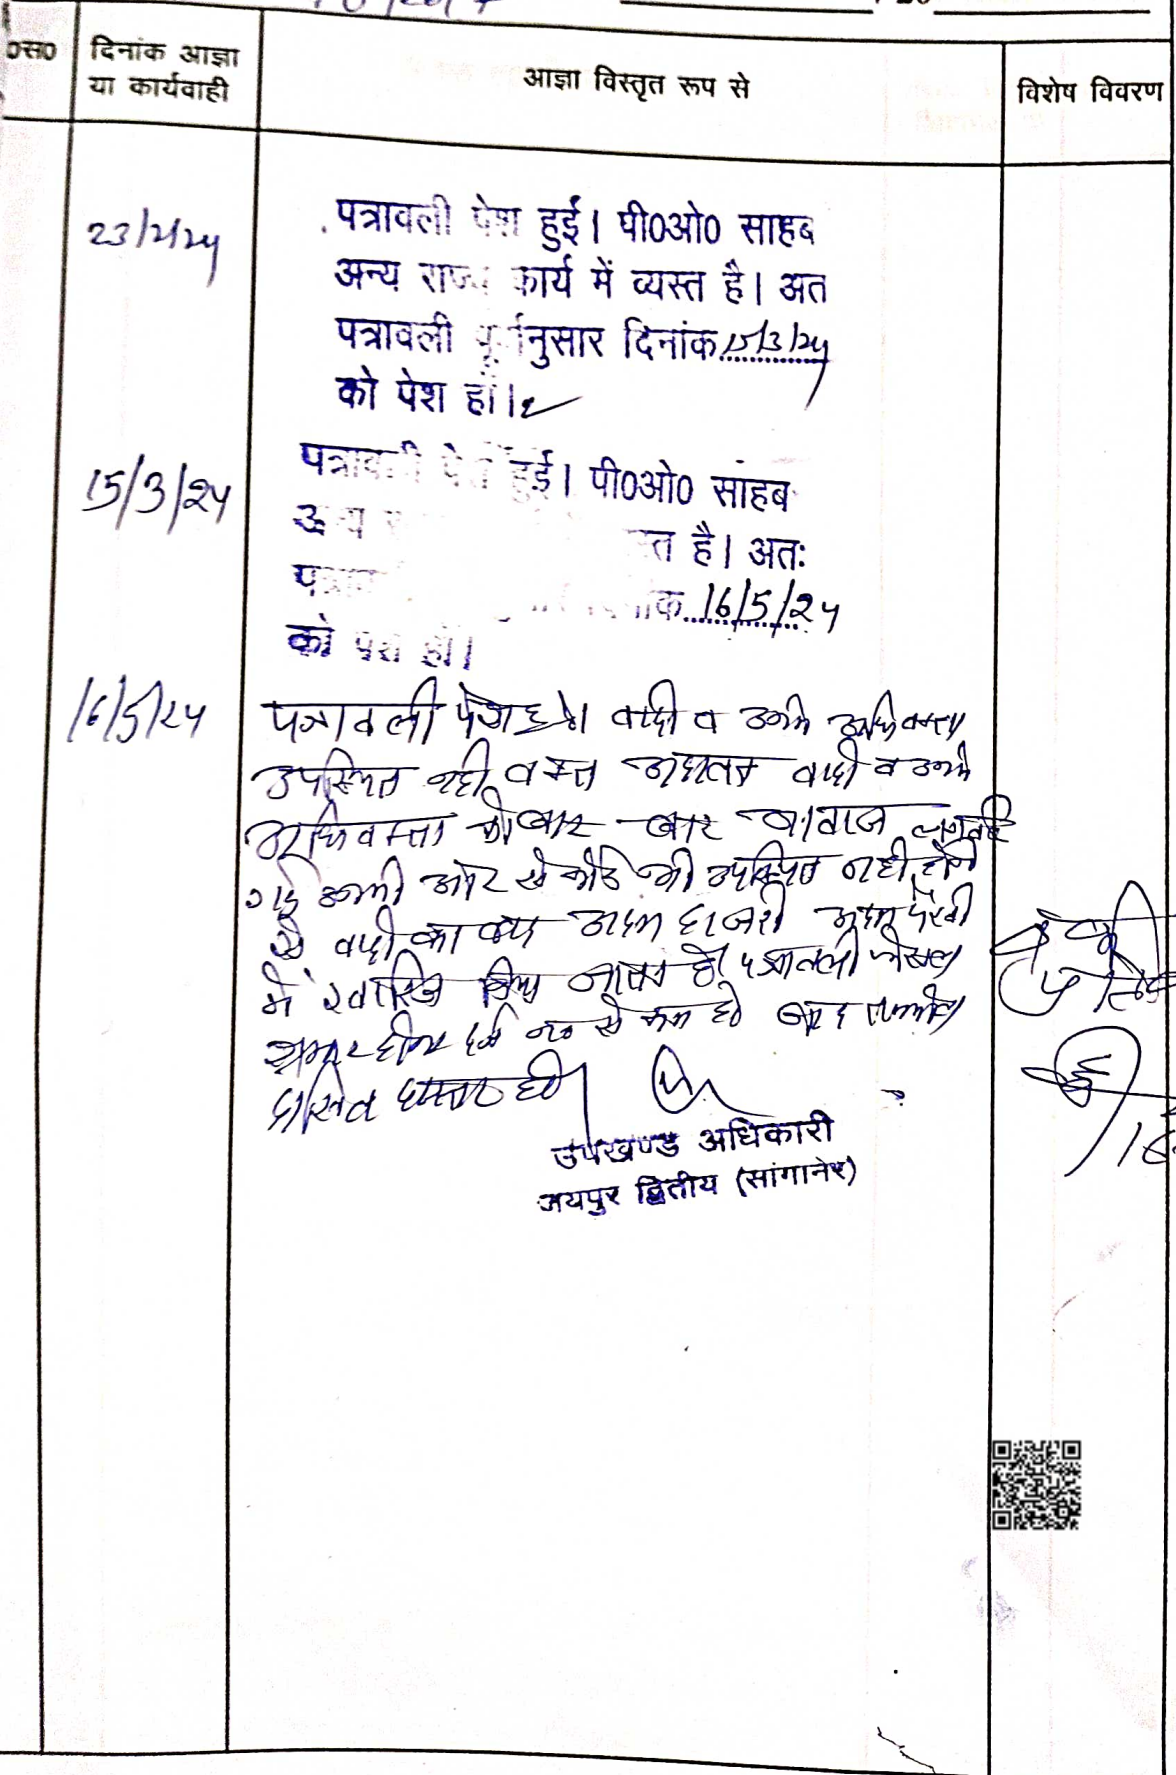 ०स० दिनांक आज्ञा या कार्यवाही आज्ञा विस्तृत रूप से विशेष विवरण
23/2/24 पत्रावली पेश हुई। पी०ओ० साहब
अन्य राज्य कार्य में व्यस्त है। अत
पत्रावली पूर्वानुसार दिनांक 15/3/24
को पेश हों।
15/3/24 पत्रावली पेश हुई। पी०ओ० साहब
अन्य है। अतः
16/5/24
को पेश हों।
16/5/24 पत्रावली पेश हुई। वादी व उनके अधिवक्ता
उपस्थित नही वक्त अदालत वादी व उनके
अधिवक्ता को बार बार आवाज लगवाई
गई उनकी ओर से कोई भी उपस्थित नही होने
से वादी का वाद अदम हाजरी अदम पैरवी
में खारिज किया जाता है। पत्रावली फैसल
शुमार होकर नम्बर से कम हो बाद तकमील
दाखिल दफ्तर हो।
उपखण्ड अधिकारी
जयपुर द्वितीय (सांगानेर)